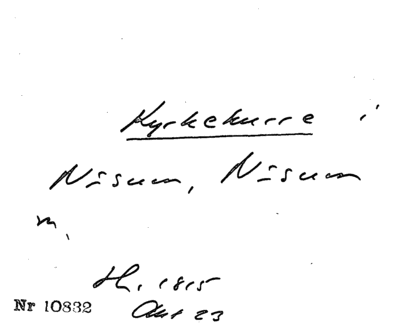 Kyrkekurre i
Nisum, Nisum
m.
Hn. 1815
Okt 23
Nr 10832